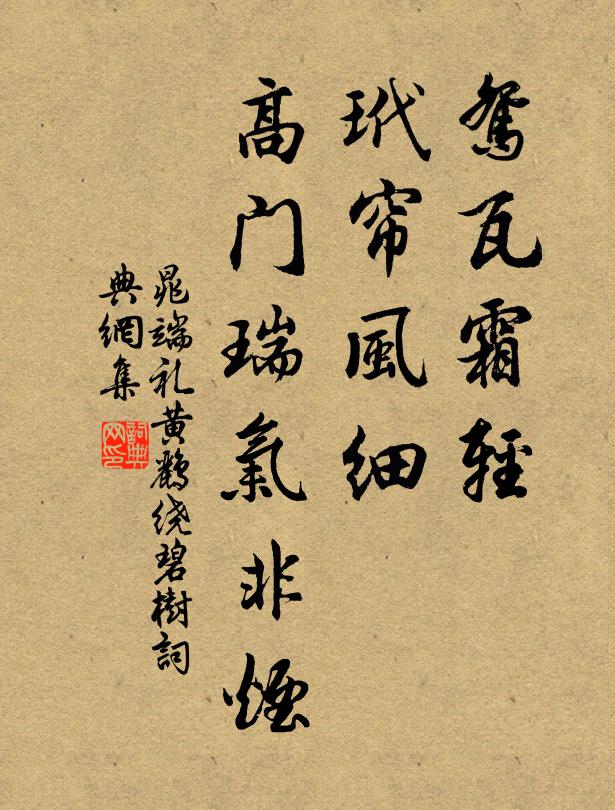 鸳瓦霜輕
玳帘風细
高门瑞氣非煙
晁端礼黄鹤绕碧樹詞
典網集
詞典网印